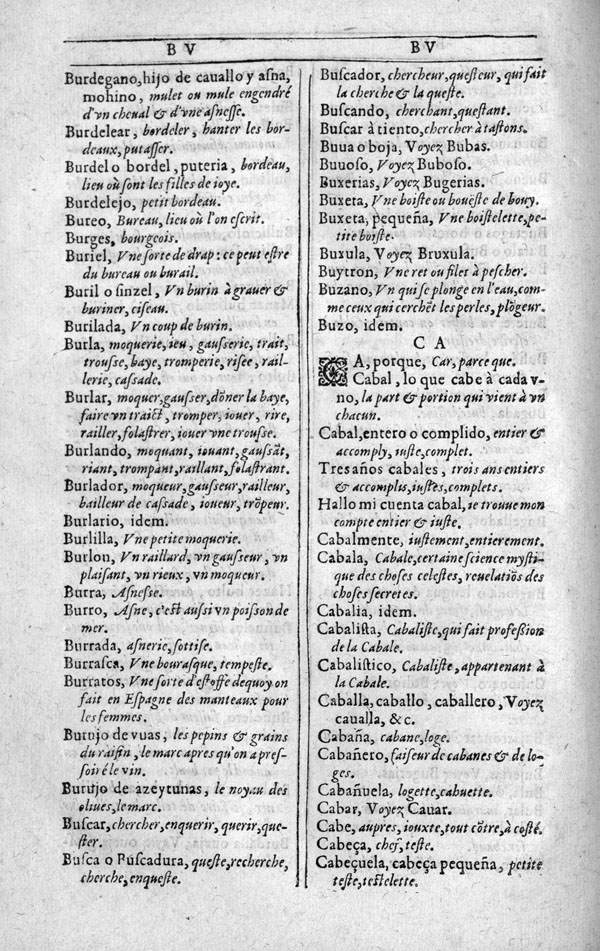 B V
Burdegano, hijo de cauallo y aſna,
mohino, mulet ou mule engendré
d'vn cheual & d'vne aſneſſe.
Burdelear, bordeler, hanter les bor-
deaux, putaſſer.
Burdel o bordel, puteria, bordeau,
lieu où ſont les filles de ioye.
Burdelejo, petit bordeau.
Bureo, Bureau, lieu où l'on eſcrit.
Burges, bourgeois.
Buriel, Vne ſorte de drap: ce peut eſtre
du bureau ou burail.
Buril o ſinzel, Vn burin à grauer &
buriner, ciſeau.
Burilada, Vn coup de burin.
Burla, moquerie, ieu, gauſſerie, trait,
trouſſe, baye, tromperie, riſee, rail-
lerie, caſſade.
Burlar, moquer, gauſſer, dōner la baye,
faire vn traict, tromper, iouer, rire,
railler, folaſtrer, iouer vne trouſſe.
Burlando, moquant, iouant, gauſſāt,
riant, trompant, raillant, folaſtrant.
Burlador, moqueur, gauſſeur, railleur,
bailleur de caſſade, ioueur, trōpeur.
Burlario, idem.
Burlilla, Vne petite moquerie.
Burlon, Vn raillard, vn gauſſeur, vn
plaiſant, vn rieux, vn moqueur.
Burra, Aſneſſe.
Burro, Aſne, c'eſt auſſi vn poiſſon de
mer.
Burrada, aſnerie, ſottiſe.
Burraſca, Vne bouraſque, tempeſte.
Burratos, Vne ſorte d'eſtoffe dequoy on
fait en Eſpagne des manteaux pour
les femmes.
Burujo de vuas, les pepins & grains
du raiſin, le marc apres qu'on a preſ-
ſoiré le vin.
Burujo de azeytunas, le noyau des
oliues, le marc.
Buſcar, chercher, enquerir, querir, que-
ſter.
Buſca o Puſcadura, queſte, recherche,
cherche, enqueſte.
B V
Buſcador, chercheur, queſteur, qui fait
la cherche & la queſte.
Buſcando, cherchant, queſtant.
Buſcar à tiento, chercher à taſtons.
Buua o boja, Voyez Bubas.
Buuoſo, Voyez Buboſo.
Buxerias, Voyez Bugerias.
Buxeta, Vne boiſte ou boueſte de bouy.
Buxeta, pequeña, Vne boiſtelette, pe-
tite boiſte.
Buxula, Voyez Bruxula.
Buytron, Vne ret ou filer à peſcher.
Buzano, Vn qui ſe plonge en l'eau, com-
me ceux qui cerchēt les perles, plōgeur.
Buzo, idem.
C A
CA, porque, Car, parce que.
Cabal, lo que cabe à cada v-
no, la part & portion qui vient à vn
chacun.
Cabal, entero o complido, entier &
accomply, iuſte, complet.
Tres años cabales, trois ans entiers
& accomplis, iuſtes, complets.
Hallo mi cuenta cabal, ie trouue mon
compte entier & iuſte.
Cabalmente, iuſtement, entierement.
Cabala, Cabale, certaine science myſti-
que des choſes celeſtes, reuelatiōs des
choſes ſecretes.
Cabalia, idem.
Cabaliſta, Cabaliſte, qui fait profeßion
de la Cabale.
Cabaliſtico, Cabaliſte, appartenant à
la Cabale.
Caballa, caballo, caballero, Voyez
caualla, & c.
Cabaña, cabane, loge.
Cabañero, faiſeur de cabanes & de lo-
ges.
Cabañuela, logette, cahuette.
Cabar, Voyez Cauar.
Cabe, aupres, iouxte, tout cōtre, à coſté.
Cabeça, chef, teſte.
Cabeçuela, cabeça pequeña, petite
teſte, teſtelette.